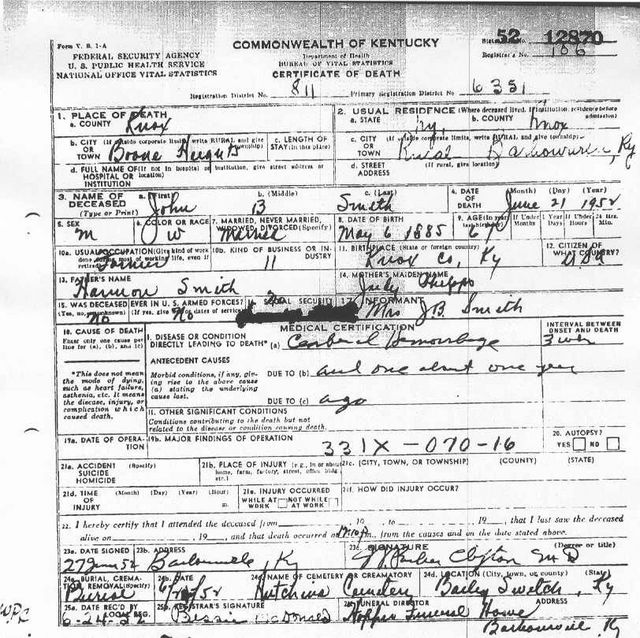 Form V. S. 1-A
COMMONWEALTH OF KENTUCKY
52 12870
FEDERAL SECURITY AGENCY
U. S. PUBLIC HEALTH SERVICE
NATIONAL OFFICE VITAL STATISTICS
Department of Health
BUREAU OF VITAL STATISTICS
CERTIFICATE OF DEATH
Registrar's No. 186
Registration District No. 811 Primary Registration District No. 6351
1. PLACE OF DEATH
a. COUNTY Knox
2. USUAL RESIDENCE (Where deceased lived. If institution: residence before admission)
a. STATE Ky. b. COUNTY Knox
b. CITY (If outside corporate limits, write RURAL and give township)
OR TOWN Boone Heights
c. LENGTH OF STAY (in this place)
c. CITY (If outside corporate limits, write RURAL and give township)
OR TOWN Rural Barbourville, Ky
d. FULL NAME OF (If not in hospital or institution, give street address or location)
HOSPITAL OR INSTITUTION
d. STREET ADDRESS (If rural, give location)
3. NAME OF DECEASED (Type or Print)
a. (First) John b. (Middle) B c. (Last) Smith
4. DATE OF DEATH (Month) (Day) (Year) June 21 1952
5. SEX M
6. COLOR OR RACE W
7. MARRIED, NEVER MARRIED, WIDOWED, DIVORCED (Specify) Married
8. DATE OF BIRTH May 6 1885
9. AGE
10a. USUAL OCCUPATION (Give kind of work done during most of working life, even if retired) Farmer
10b. KIND OF BUSINESS OR INDUSTRY 11
11. BIRTHPLACE (State or foreign country) Knox Co, Ky
12. CITIZEN OF WHAT COUNTRY? USA
13. FATHER'S NAME
Harmon Smith
14. MOTHER'S MAIDEN NAME
July Phipps
15. WAS DECEASED EVER IN U. S. ARMED FORCES?
(Yes, no, or unknown) No (If yes, give war or dates of service) No
SECURITY
17. INFORMANT
Mrs J.B. Smith
18. CAUSE OF DEATH
Enter only one cause per line for (a), (b), and (c)
MEDICAL CERTIFICATION
INTERVAL BETWEEN ONSET AND DEATH
I. DISEASE OR CONDITION DIRECTLY LEADING TO DEATH* (a) Cerberal Hemorrhage
*This does not mean the mode of dying, such as heart failure, asthenia, etc. It means the disease, injury, or complication which caused death.
ANTECEDENT CAUSES
Morbid conditions, if any, giving rise to the above cause (a) stating the underlying cause last.
DUE TO (b) and one about one year
DUE TO (c) ago
II. OTHER SIGNIFICANT CONDITIONS
Conditions contributing to the death but not related to the disease or condition causing death.
19a. DATE OF OPERATION
19b. MAJOR FINDINGS OF OPERATION
331X-070-16
20. AUTOPSY?
YES NO
21a. ACCIDENT SUICIDE HOMICIDE (Specify)
21b. PLACE OF INJURY (e.g., in or about home, farm, factory, street, office bldg., etc.)
21c. (CITY, TOWN, OR TOWNSHIP) (COUNTY) (STATE)
21d. TIME OF INJURY (Month) (Day) (Year) (Hour)
21e. INJURY OCCURRED
WHILE AT WORK NOT WHILE AT WORK
21f. HOW DID INJURY OCCUR?
22. I hereby certify that I attended the deceased from 19 to 19 , that I last saw the deceased
alive on 19 , and that death occurred at m., from the causes and on the date stated above.
23a. DATE SIGNED 27 June 52
23b. ADDRESS Barbourville, Ky
23c. SIGNATURE (Degree or title)
Clifton M D
24a. BURIAL, CREMATION, REMOVAL (Specify) Burial
24b. DATE
24c. NAME OF CEMETERY OR CREMATORY Hutchins Cemetery
24d. LOCATION (City, town, or county) (State) Bailey Switch, Ky
25a. DATE REC'D BY LOCAL REG. 6-24-52
25b. REGISTRAR'S SIGNATURE Bessie McDonald
FUNERAL DIRECTOR Hopper Funeral Home
Barbourville Ky